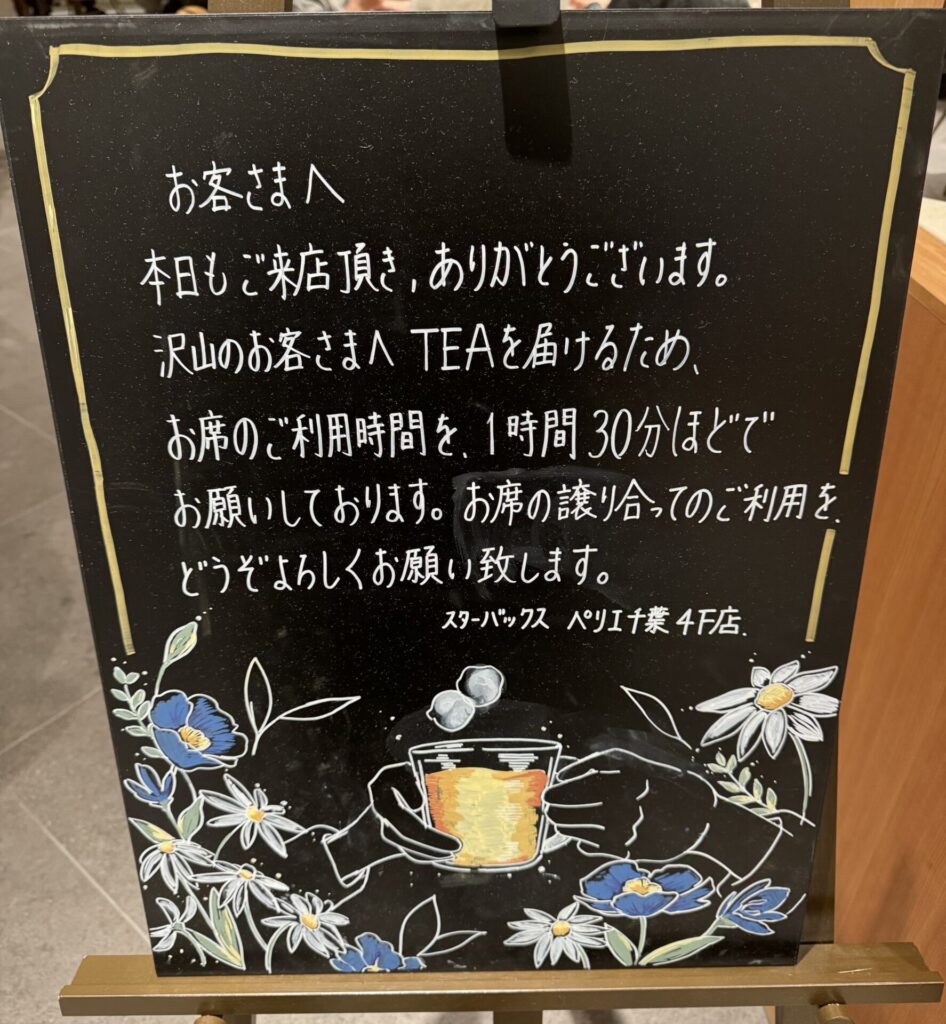 お客さまへ
本日もご来店頂き,ありがとうございます。
沢山のお客さまへ TEAを届けるため、
お席のご利用時間を、1時間30分ほどで
お願いしております。お席の譲り合ってのご利用を、
どうぞよろしくお願い致します。
スターバックス ペリエ千葉4F店.